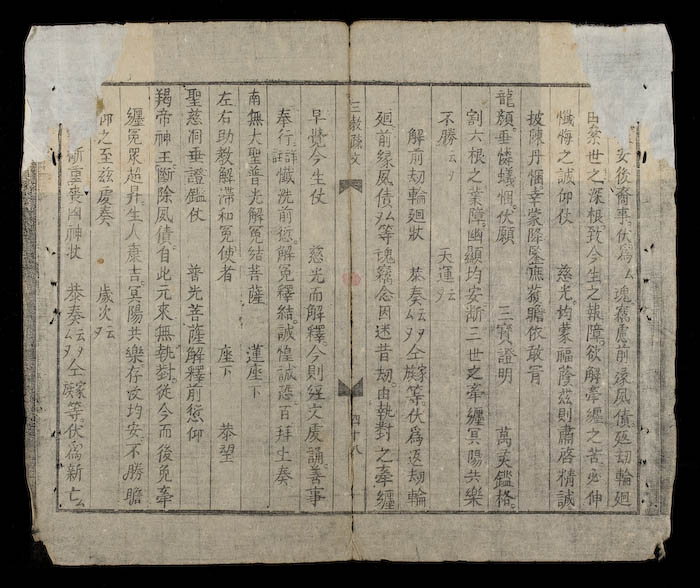 女後裔事伏爲厶魂竊慮前緣風債殛劫輪廻
由桒世之深根致今生之報障欲解牽纏之苦必伸
懺悔之誠仰仗　慈光均蒙福蔭兹則肅啓精誠
披陳丹悃幸蒙降鑒庶獲瞻依敢冐
三寶證明　萬天鑑格
龍顔垂憐蟻悃伏願
割六根之業障幽顯均安漸三世之牽纏冥陽共樂
不勝云　天運云
解前刼輪廻狀　恭奏云仝家族等伏爲返刼輪
廻前緣風債厶等魂竊念因迷昔刼由執對之牽纏
三教疏文　四十八
早覺今生仗　慈光而解釋今則經文處誦善事
奉行詳懺洗前愆解冤釋結誠惶誠恐百拜上奏
南無大聖普光解冤結菩薩　蓮座下
左右助教解滯和冤使者　座下　恭望
聖慈洞垂證鑑仗　普光菩薩解釋前愆仰
羯帝神王斷除風債自此元來無執對從今而後免牽
纏冤眾超昇生人康吉冥陽共樂存沒均安不勝瞻
仰之至兹處奏　歲次云
斷重喪凶神狀　恭奏云仝家族等伏爲新亡厶